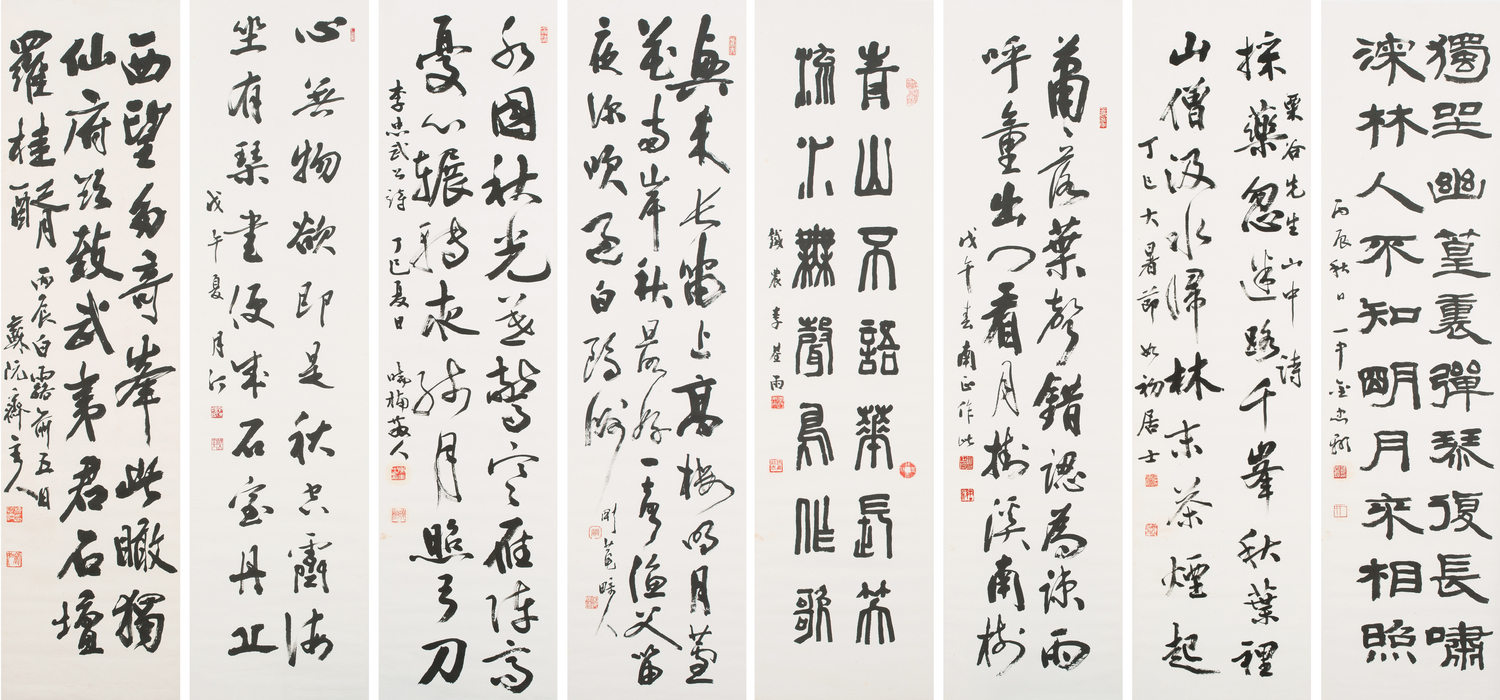 獨坐幽篁裏彈琴復長嘯
深林人不知明月來相照
丙辰秋日 一中金忠顯
採藥忽迷路千峯秋葉裡
栗谷先生 山中 詩
山僧汲水歸林末茶煙起
丁巳大暑節 如初居士
蕭〻落葉聲錯認為疎雨
呼童出門看月掛溪南樹
戊午春南正作此
青山不語華長笑
流水無聲鳥作歌
鐵農李基雨
興來長嘯上高樓明月蘆
花兩岸秋最好一聲漁父笛
夜深吹過白鷗洲
剛菴人
水國秋光暮驚寒雁陣高
憂心輾轉夜殘月照弓刀
李忠武公詩 丁巳夏日 曉楠散人
心無物欲即是秋空霽海
坐有琴書便成石室丹丘
戊午夏 月汀
西望多奇峯此瞰獨
仙府欲致武夷君石壇
羅桂醑 丙辰白露前五日
蘇阮齋主人